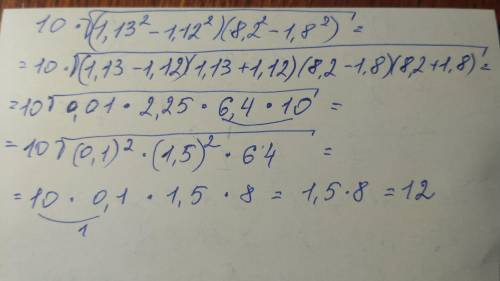 10·√(1,13²-1,12²)(8,2²-1,8²) =
=10·√(1,13-1,12)(1,13+1,12)(8,2-1,8)(8,2+1,8)=
=10√0,01·2,25·6,4·10 =
=10√(0,1)²·(1,5)²·64 =
=10·0,1·1,5·8 = 1,5·8 =12
1